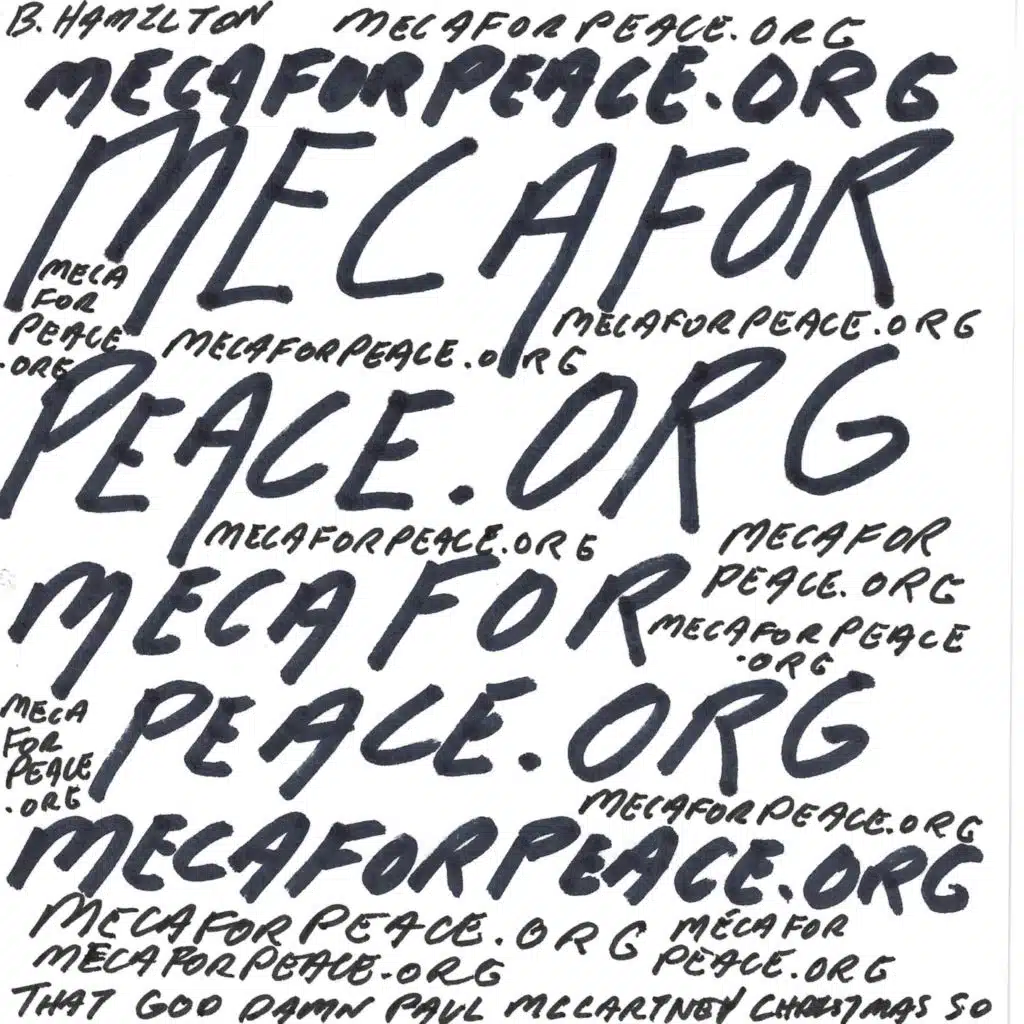 B. HAMILTON MECAFORPEACE.ORG
MECAFORPEACE.ORG
MECAFOR
MECA
FOR
PEACE
.ORG
MECAFORPEACE.ORG
MECAFORPEACE.ORG
PEACE.ORG
MECAFORPEACE.ORG
MECAFOR
PEACE.ORG
MECA FOR
MECAFORPEACE
.ORG
MECA
FOR
PEACE
.ORG
PEACE.ORG
MECAFORPEACE.ORG
MECAFORPEACE.ORG
MECAFORPEACE.ORG
MECAFORPEACE.ORG
MECAFOR
PEACE.ORG
THAT GOD DAMN PAUL MCCARTNEY CHRISTMAS SO